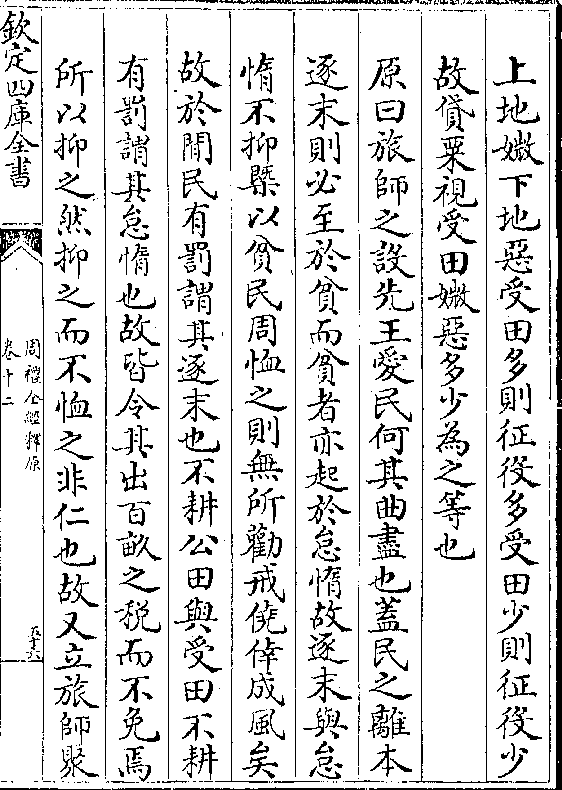 上地媺下地惡受田多則征役多受田少則征役少
故貸粟視受田媺惡多少為之等也
原曰旅師之設先王愛民何其曲盡也蓋民之離本
逐末則必至於貧而貧者亦起於怠惰故逐末與怠
惰不抑槩以貧民周恤之則無所勸戒僥倖成風矣
故於閒民有罰謂其逐末也不耕公田與受田不耕
有罰謂其怠惰也故皆令其出百畝之稅而不免焉
所以抑之然抑之而不恤之非仁也故又立旅師聚
欽定四庫全書
周禮全經釋原
卷十二